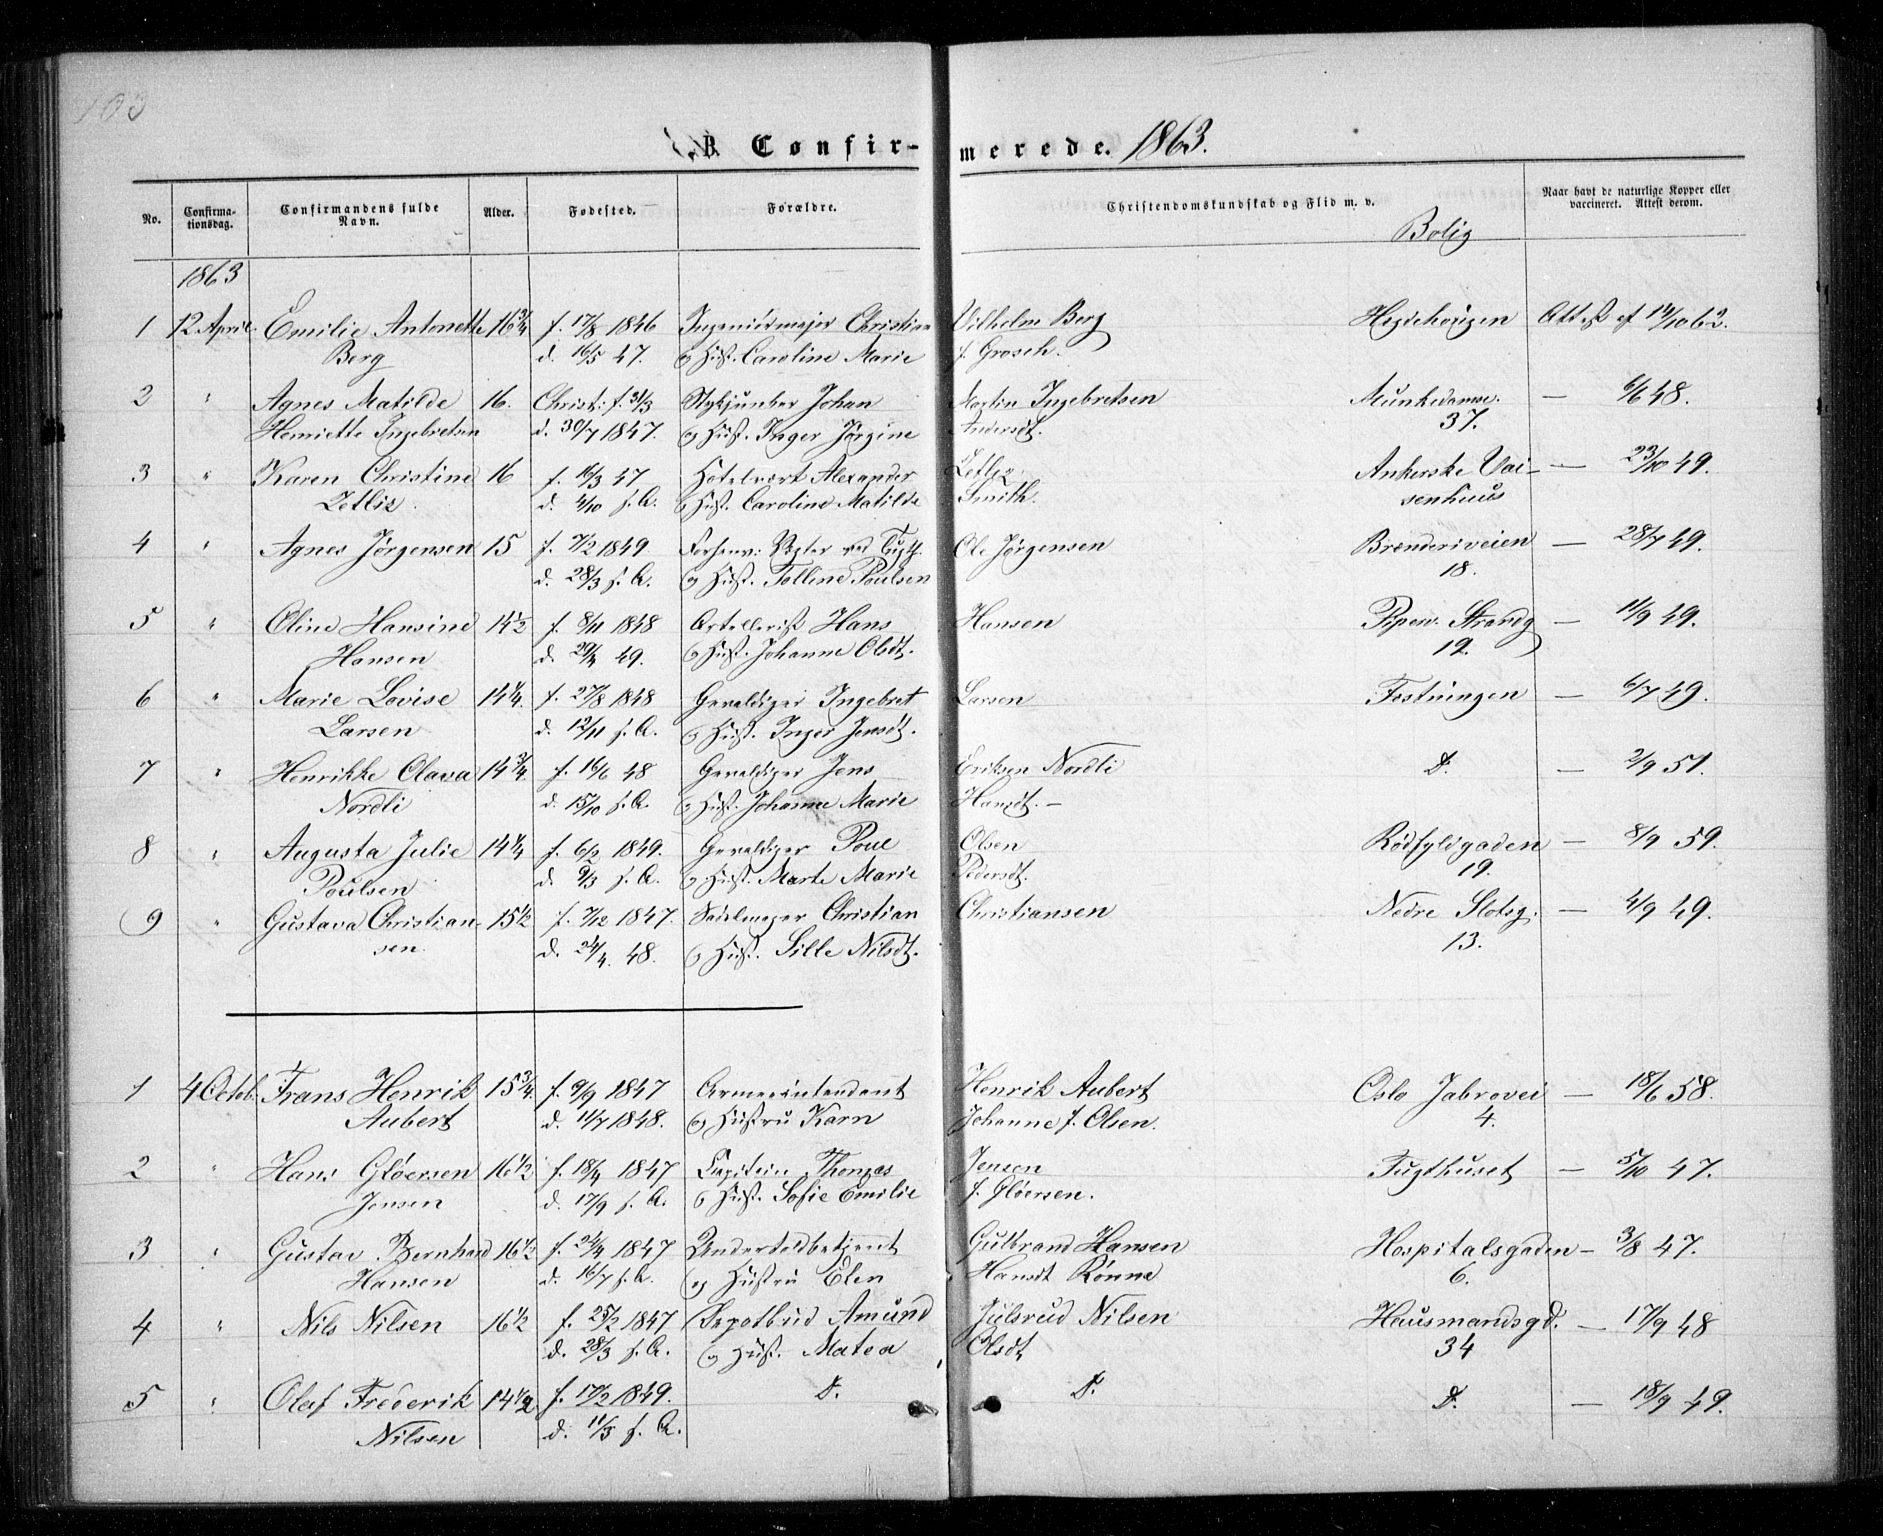 103
B. Confir- merede. 1863.
No. Confirma-tionsdag. Confirmandens fulde Navn. Alder. Fødested. Forældre. Christendomskundskab og Flid m. v. Bolig Naar havt de naturlige Kopper eller vaccineret. Attest derom.
1863
1 12 April. Emilie Antonette 16 3/4 f. 17/8 1846 Ingeniørmajor Christian Vilhelm Berg Hegdehougen Attest af 14/10 62.
Berg d. 16/5 47. og Hust. Caroline Marie f. Grosch.
2 " Agnes Matilde 16. Christ: f. 31/3 Stykjunker Johan Martin Ingebretsen Munkedamsv. — 6/6 48.
Henriette Ingebretsen d. 30/7 1847. og Hust. Inger Jørgine Andersdt. 37.
3 " Karen Christine 16 f. 16/3 47 Hotelvert Alexander Zetliz Ankerske Vai- — 23/10 49.
Zetliz d. 4/10 s. A. og Hust. Caroline Matilde Smith. senhuus
4 " Agnes Jørgensen 15 f. 7/2 1849 Forhenv: Vegter ved Tugth. Ole Jørgensen Brænderiveien — 28/7 49.
d. 28/3 s. A. og Hust. Tolline Poulsen 18.
5 " Oline Hansine 14 1/2 f. 8/11 1848 Artellerist Hans Hansen Piperv. Strandg — 11/9 49.
Hansen d. 29/4 49. og Hust. Johanne Olsdt. 12.
6 " Marie Lovise 14 1/4. f. 27/8 1848 Geraldiger Ingebret Larsen Festningen — 6/7 49.
Larsen d. 12/11 s. A. og Hust. Inger Jensdt.
7 " Henrikke Olava 14 3/4. f. 16/6 48 Geraldiger Jens Eriksen Nordli D. — 2/9 51.
Nordli d. 15/10 s. A. og Hust. Johanne Marie Hansdt. —
8 " Augusta Julie 14 1/4 f. 6/2 1849. Geraldiger Poul Olsen Rødfyldgaden — 8/9 59.
Poulsen d. 9/3 s. A. og Hust. Marte Marie Pedersdt. 19.
9 " Gustava Christian- 15 1/2 f. 7/12 1847. Sadelmager Christian Christiansen Nedre Slotsg. — 4/9 49.
sen. d. 24/4. 48. og Hust. Sille Nilsdt. 13.
1 4 Octob. Frans Henrik 15 3/4. f. 9/9 1847 Armeeintendant Henrik Aubert Oslo Jabrovei — 18/6 58.
Aubert d. 11/7 1848. og Hustru Karn Johanne f. Olsen. 4.
2 " Hans Gløersen 16 1/2 f. 18/4 1847 Capitein Thomas Jensen Tugthuset — 5/10 47.
Jensen d. 17/9 s. A. og Hust. Sofie Emilie f. Gløersen.
3 " Gustav Bernhard 16 1/2 f. 24/4 1847 Undertoldbetjent Gulbrand Hansen Hospitalsgaden — 3/8 47.
Hansen d. 16/7 s. A. og Hustru Elen Hansdt Rønne 6.
4 " Nils Nilsen 16 1/2 f. 25/2 1847 Depotbud Amund Julsrud Nilsen Hausmandsgd. — 17/9 48
d. 28/3 s. A. og Hust. Matea Olsdt, 34
5 " Olaf Frederik 14 1/2 f. 17/2 1849. D. D. D. — 18/9 49.
Nilsen d. 11/3 s. A.